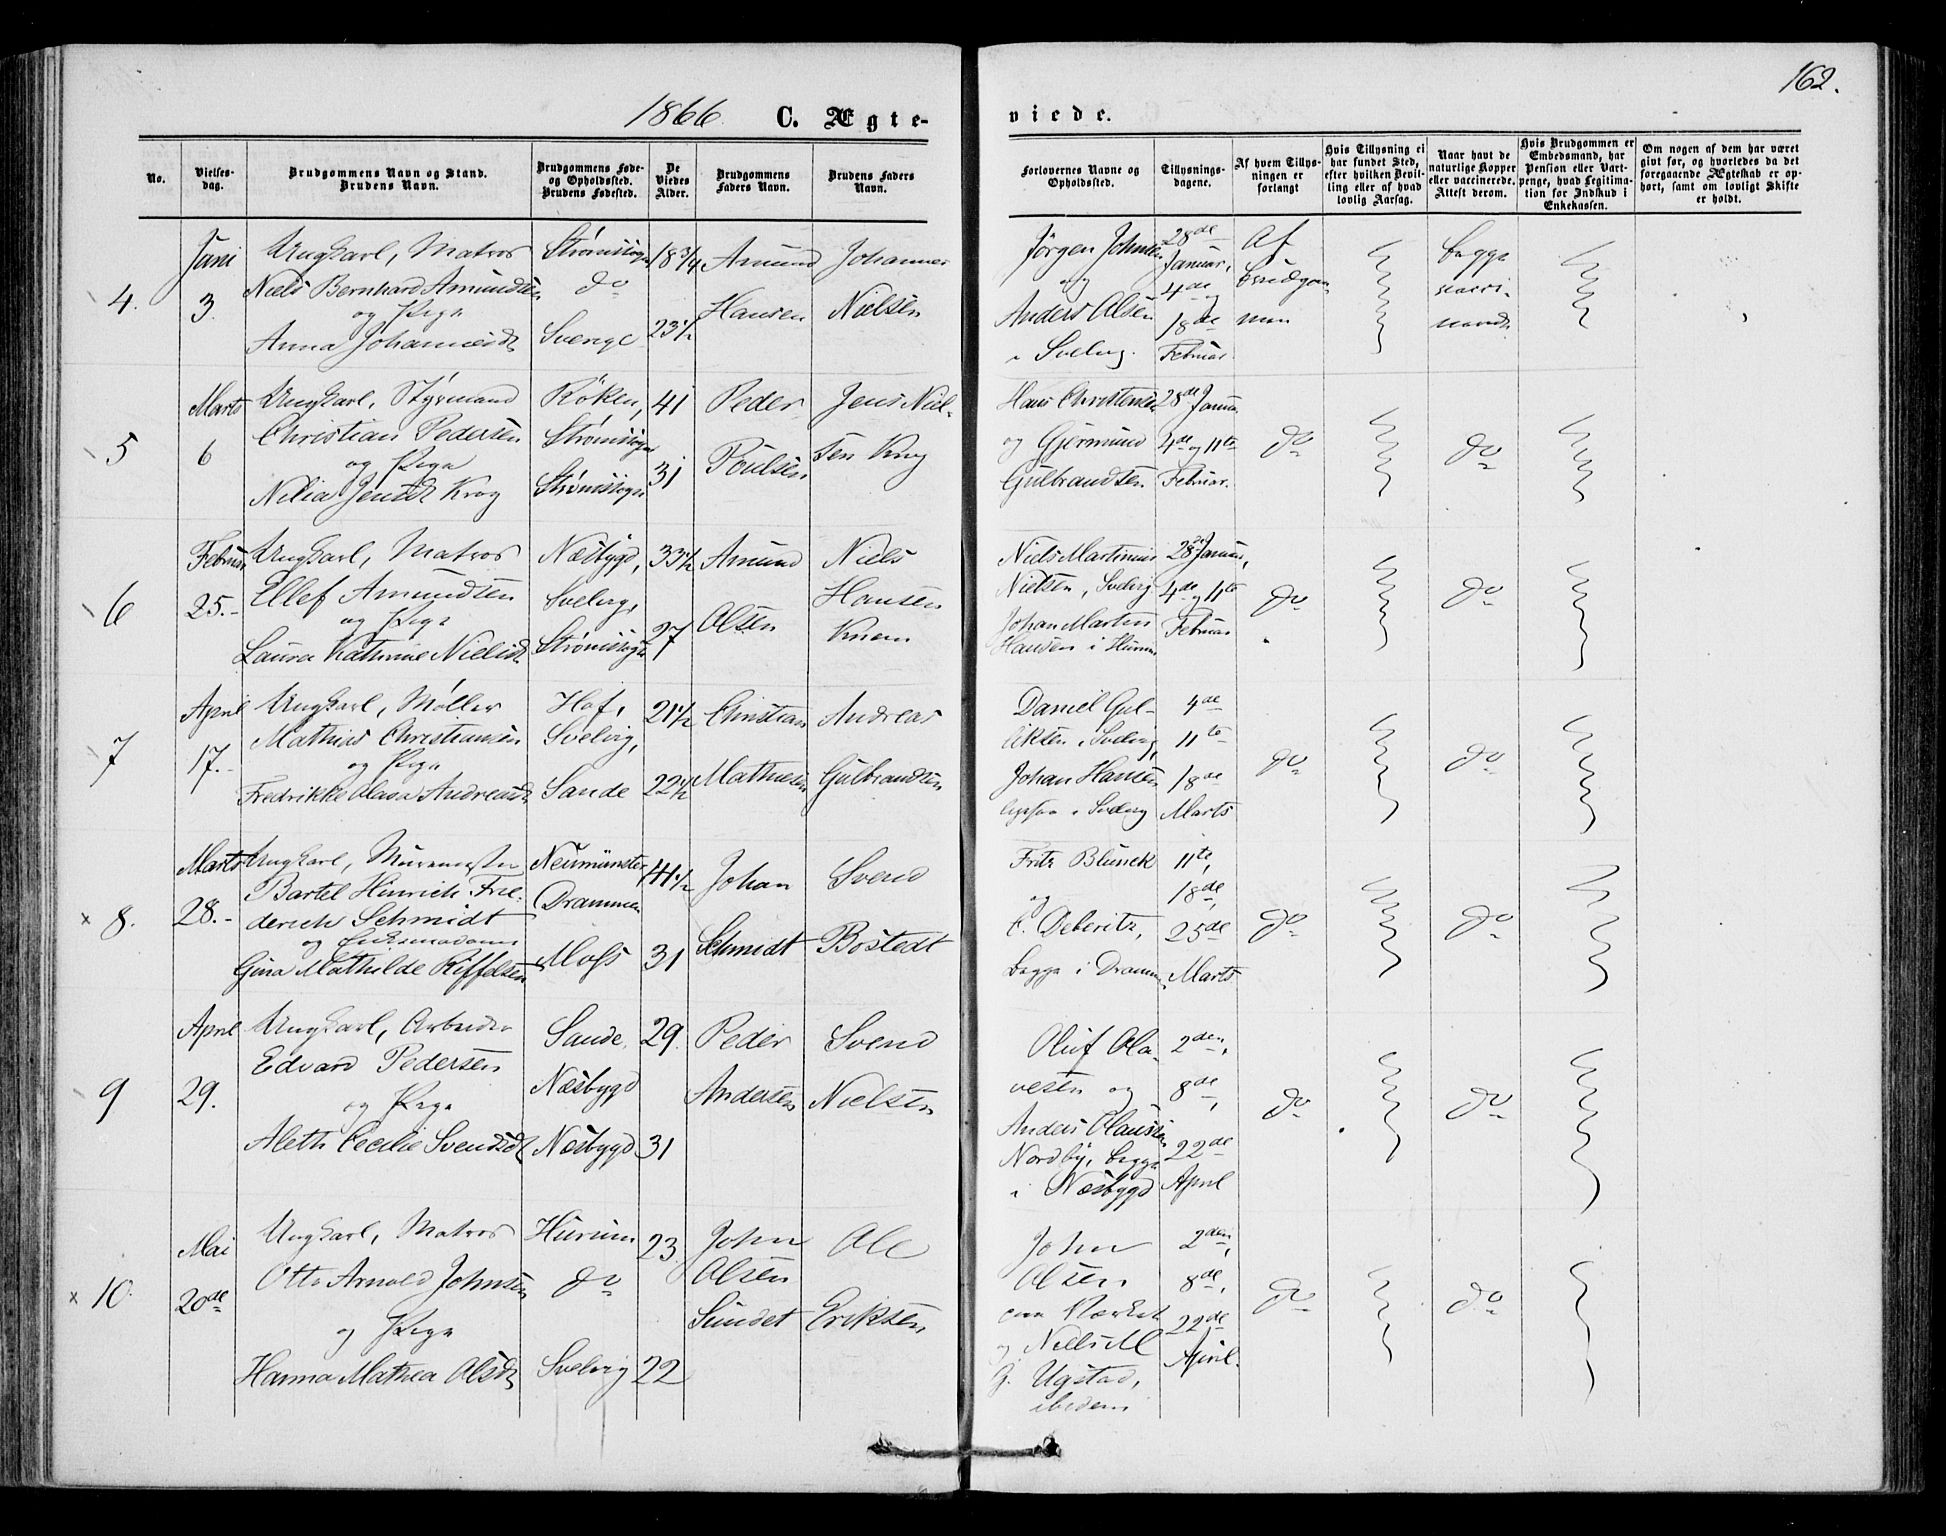 162.
1866 C. Ægte- viede.
No.
Vielses-
dag.
Brudgommens Navn og Stand.
Brudens Navn.
Brudgommens Føde-
og Opholdssted.
Brudens Fødested.
De
Viedes
Alder.
Brudgommens
Faders Navn.
Brudens Faders
Navn.
Forlovernes Navne og
Opholdssted.
Tillysnings-
dagene.
Af hvem Tillys-
ningen er
forlangt
Hvis Tillysning ei
har fundet Sted,
efter hvilken Bevil-
ling eller af hvad
lovlig Aarsag.
Naar havt de
naturlige Kopper
eller vaccinerede.
Attest derom.
Hvis Brudgommen er
Embedsmand, har
Pension eller Vart-
penge, hvad Legitima-
tion for Indskud i
Enkekassen.
Om nogen af dem har været
givt før, og hvorledes da det
foregaaende Ægteskab er op-
hørt, samt om lovligt Skifte
er holdt.
4.
Juni
3.
Ungkarl, Matros
Niels Bernhard Amundsen
og Pige
Anna Johannesdt
Strømssogn
do
Sverige
18 3/4
23 1/2
Amund
Hansen
Johannes
Nielsen
Jørgen Johnsen
og
Anders Olsen
i Svelvig.
28de
Januar,
4de og
18de
Februar
Af
brudgom-
men
begge
vacci-
nerede
5
Marts
6
Ungkarl, Styrmand
Christian Pedersen
og Pige
Nilia Jensdt Krog
Røken,
Strømssogn
Strømssogn
41
31
Peder
Poulsen
Jens Niel-
sen Krog
Hans Christensen
og Gjermund
Gulbrandsen
28de Janua
4de og 11te
Februar.
do
do
6
Februar
25.-
Ungkarl, Matros
Ellef Amundsen
og Pige
Laura Kathrine Nielsdt
Næsbygd,
Svelvig,
Strømssogn
33 1/2
27
Amund
Olsen
Niels
Hansen
Knem
Niels Martinius
Nielsen, Svelvig
Johan Martin
Hansen i Hurum
28de Januar,
4de og 11te
Februar
do
do
7
April
17.-
Ungkarl, Møller
Mathias Christiansen
og Pige
Fredrikke Olava Andreasdt
Hof,
Svelvig,
Sande
21 1/2
22 1/2
Christian
Mathiesen
Andreas
Gulbrandsen
Daniel Gul-
liksen, Svelvig,
Johan Hansen
i Svelvig
4de
11te
18de
Marts
do
do
8.
Marts
28.-
Ungkarl, Muremester
Bartel Hinrich Frie-
derich Schmidt
og
Gina Mathilde Riffelsen
Neumünster
Drammen
Moss
41 1/2
31
Johan
Schmidt
Svend
Bostedt
Fritz Blunck
og
C. Deberitz,
begge i Drammen
11te,
18de,
25de
Marts
do
do
9
April
29.
Ungkarl, Arbeider
Edvard Pedersen
og Pige
Aleth Cecilie Svendsdt
Sande,
Næsbygd
Næsbygd
29.
31
Peder
Andersen
Svend
Nielsen
Oluf Ola-
vesen og
Anders Olaussen
Nordby, begge
i Næsbygd
2den,
8de,
22de
April
do
do
10.
Mai
20de
Ungkarl, Matros
Otto Arnold Johnsen
og Pige
Hanna Mathea Olsdt
Hurum
do
Svelvig
23
22
John
Olsen
Sundet
Ole
Eriksen
John
Olsen
paa Værket
og Niels M
G. Ugstad,
ibidem
2den,
8de,
22de
April.
do
do